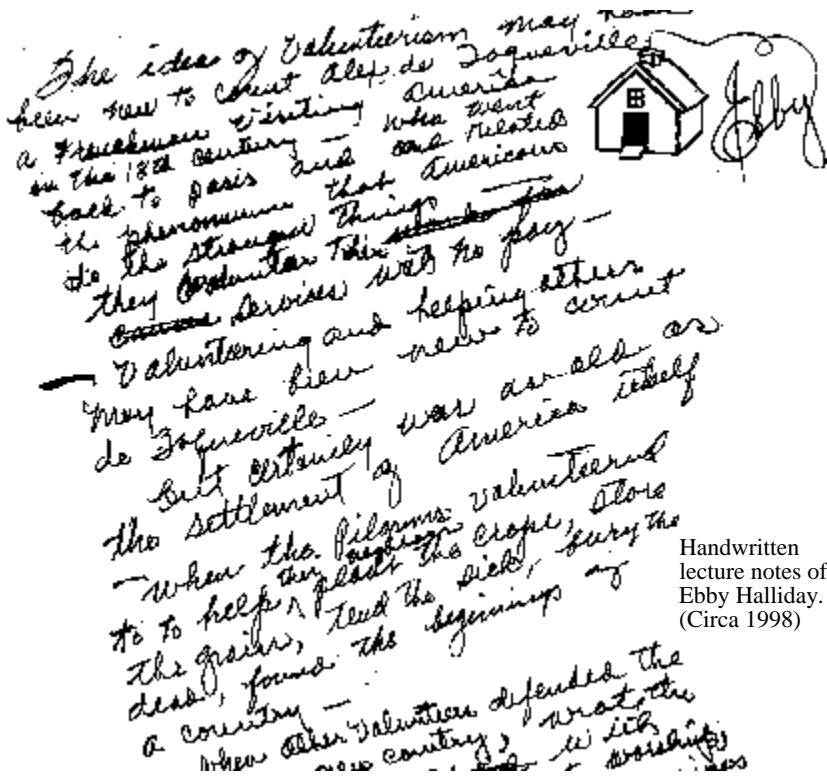 The idea of Valunteerism may have
been new to Count Alex de Toqueville,
a Frenchman visiting America
in the 18th Century — who went
back to Paris and related
the phenomenum that Americans
do the strangest things —
they volunteer their
services with no pay —
— Valunteering and helping others
may have been new to count
de Toqueville —
But certainly was as old as
the settlement of America itself
— When the Pilgrims valunteered
to to help their neighbors plant the crops, store
the grain, tend the sick, bury the
dead, found the beginnings of
a country —
When other Valunteers defended the
new country, wrote the
with
worship,
Ebby
Handwritten
lecture notes of
Ebby Halliday.
(Circa 1998)